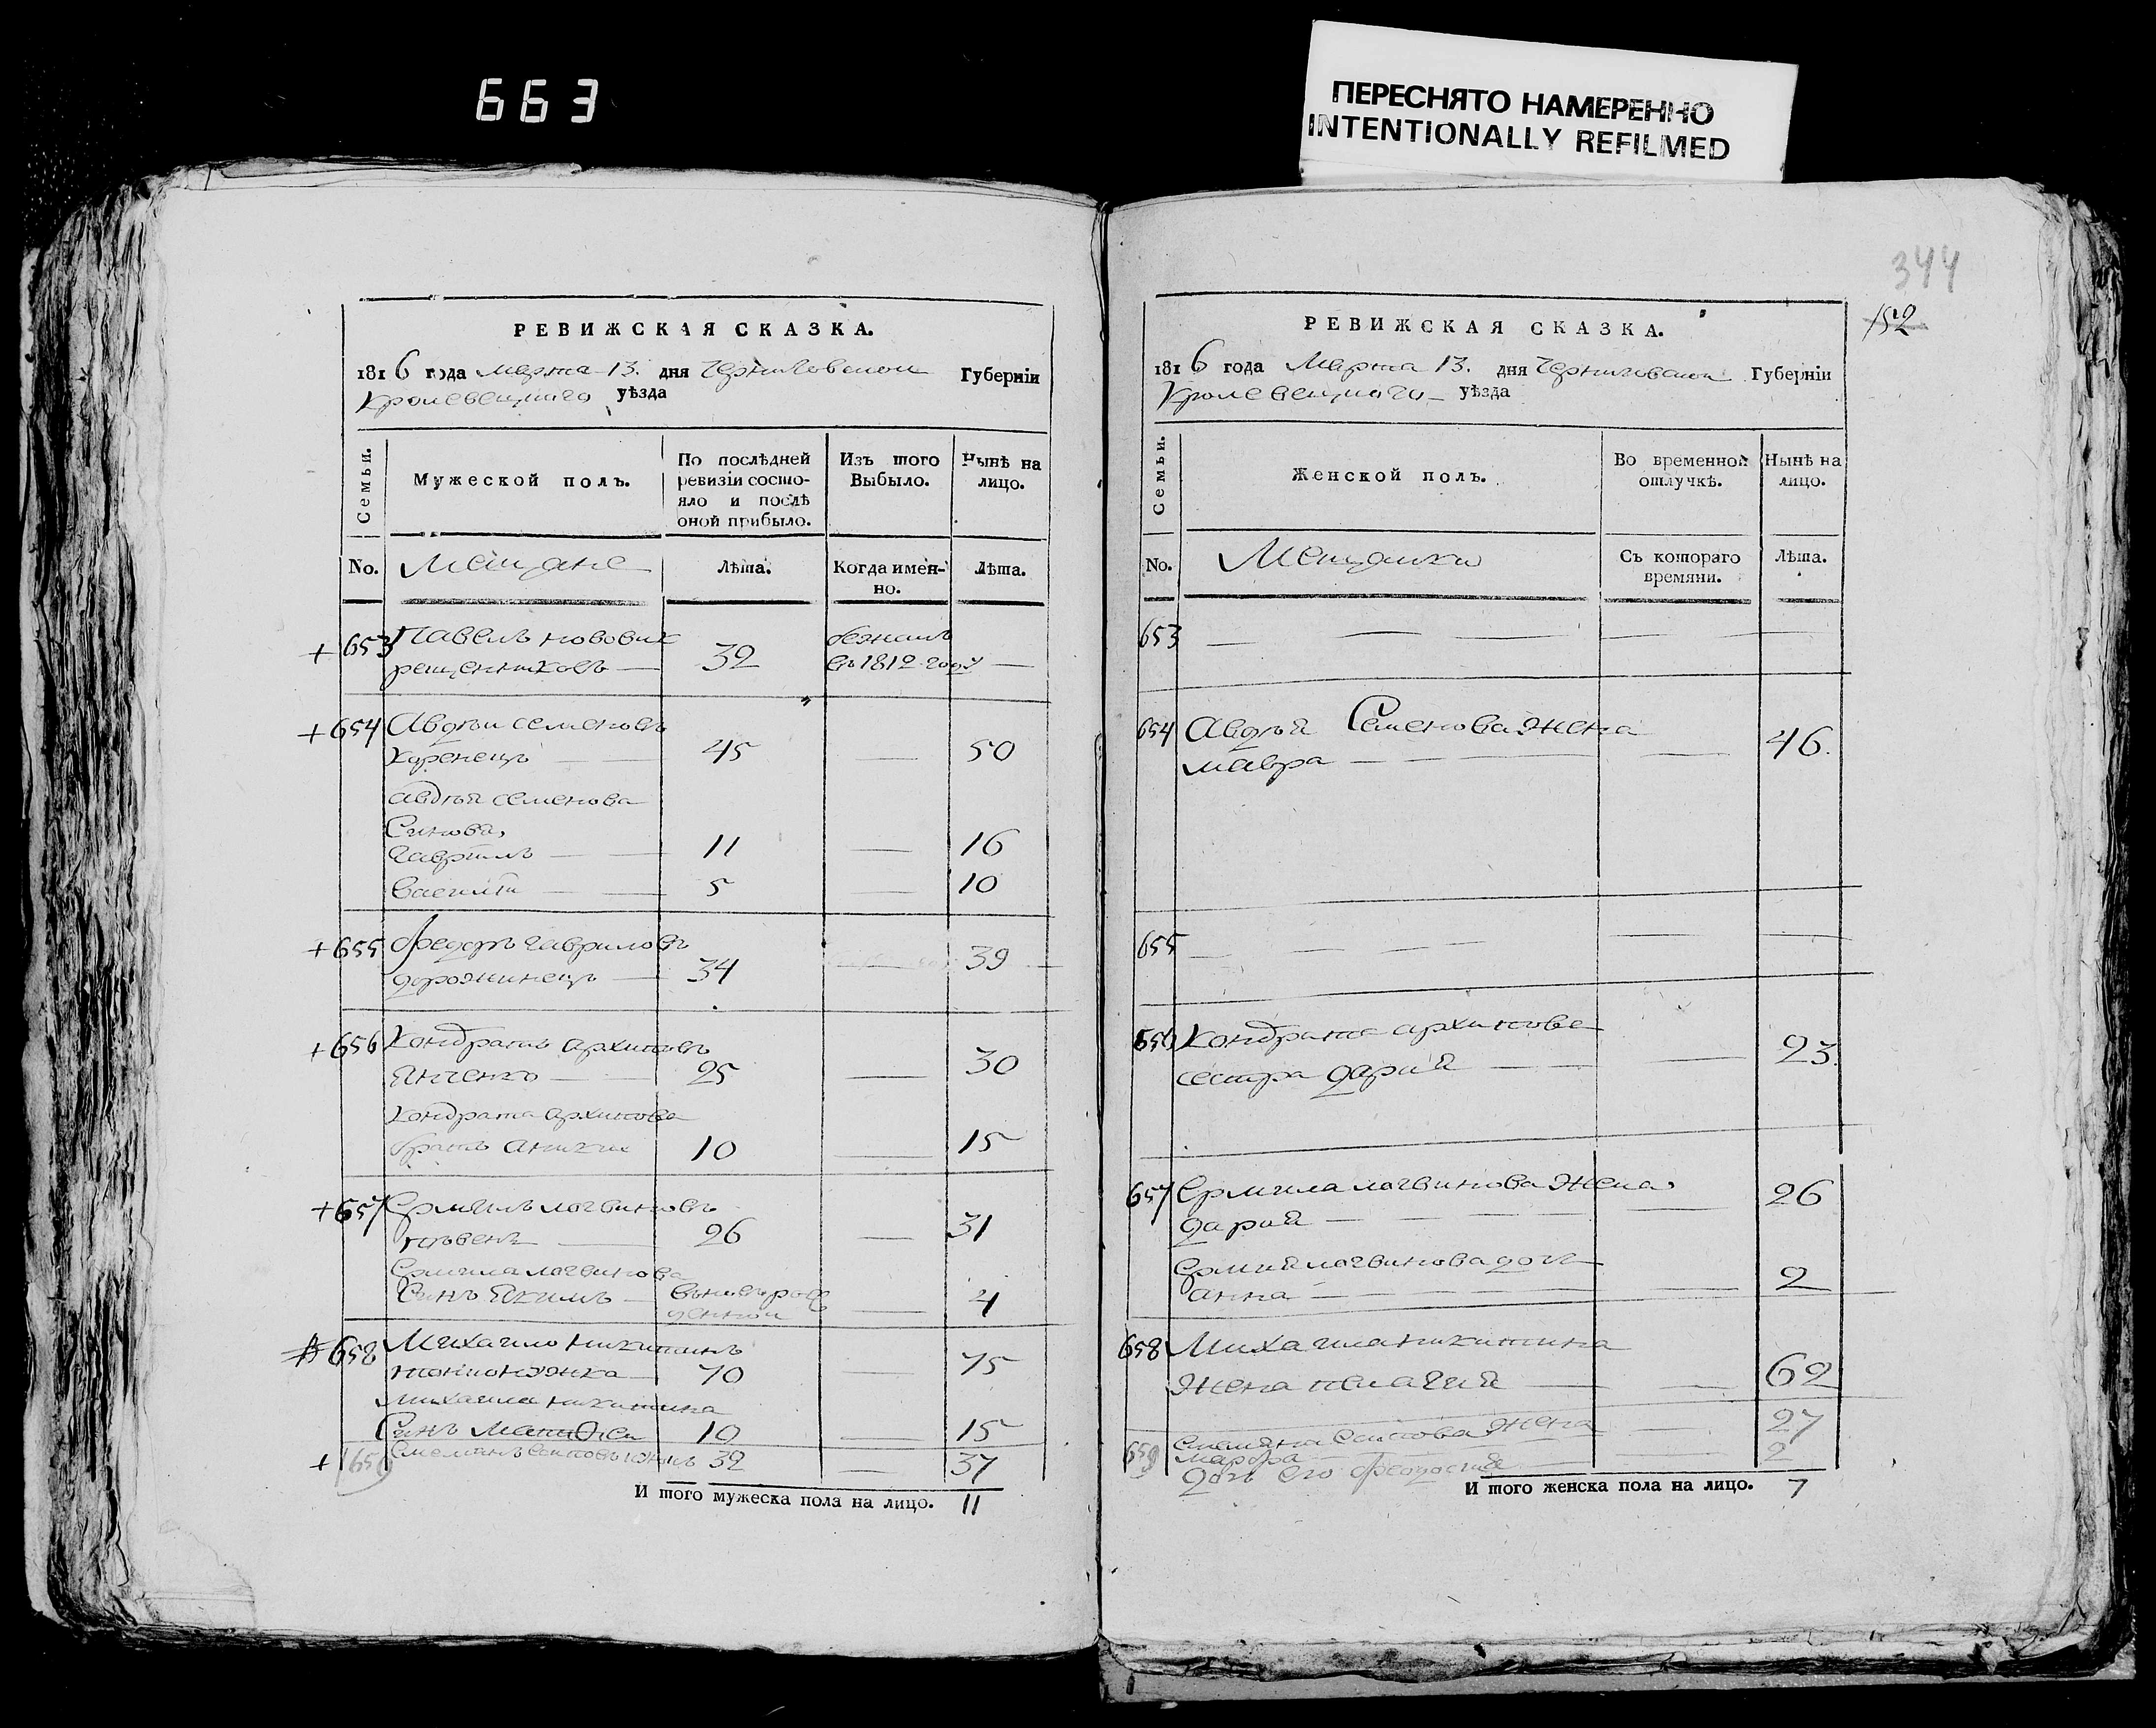 663
ПЕРЕСНЯТО НАМЕРЕННО
INTENTIONALLY REFILMED
344
152
РЕВИЖСКАЯ СКАЗКА.
1816 года марта 13. дня Черниговской Губерніи
Кролевецкаго уѣзда
Семьи.
Мужеской полъ.
По послѣдней ревизіи состояло и послѣ оной прибыло.
Изъ того Выбыло.
Нынѣ на лицо.
No. Мещане Лѣта. Когда именно. Лѣта.
+ 653 Павелъ новових
рещенниковъ — 32 бежалъ въ 1812 году —
+ 654 Авдѣи семеновъ
Куренецъ — 45 — 50
авдѣя семенова
Синова,
гаврилъ — 11 — 16
василій — 5 — 10
+ 655 Федоръ гавриловъ
дорожинецъ — 34 39
+ 656 Кондратъ архиповъ
Янченко — 25 — 30
Кондрата архипова
братъ аникии 10 — 15
+ 657 Ермилъ логвиновъ
26 — 31
Ермила логвинова
Синъ Якимъ — вновь рожденной — 4
658 Михаило никитинъ
70 — 75
михаила никитина
Синъ Матвеи 10 — 15
+ 659 32 — 37
И того мужеска пола на лицо. 11
РЕВИЖСКАЯ СКАЗКА.
1816 года Марта 13. дня Черниговской Губерніи
Кролевецкаго уѣзда
Семьи.
Женской полъ.
Во временной отлучкѣ.
Нынѣ на лицо.
No. Мещанки Съ котораго времяни. Лѣта.
653 — — — — —
654 Авдѣя Семенова жена
мавра — — — — 46.
655 — — — — — —
656 Кондрата архипова
сестра дария — — 23.
657 Ермила логвинова жена
дария — — — — 26
Ермила логвинова дочь
анна — — — — 2
658 Михаила никитина
жена пелагия — — 62
659 жена — 27
марфа
дочь его феодосия — 2
И того женска пола на лицо. 7